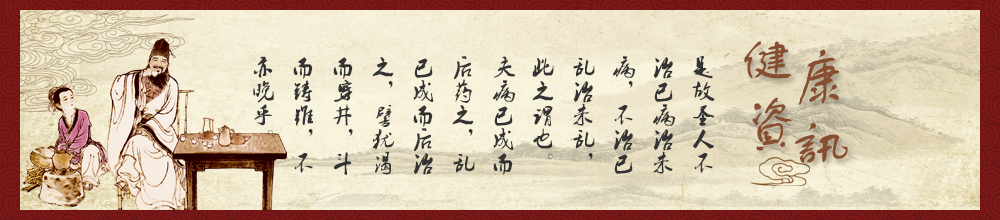 健康
資訊
是故圣人不
治已病治未
病，不治已
乱治未乱，
此之谓也。
夫病已成而
后药之，乱
已成而后治
之，譬犹渴
而穿井，斗
而铸锥，不
亦晚乎